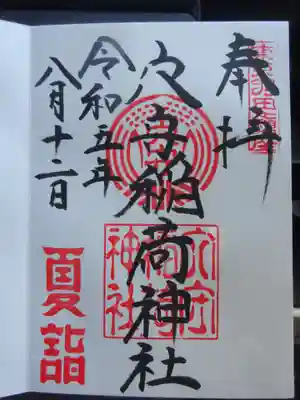 奉拝
穴守稲荷神社
令和五年
八月十二日
夏詣
穴守
稲荷
神社